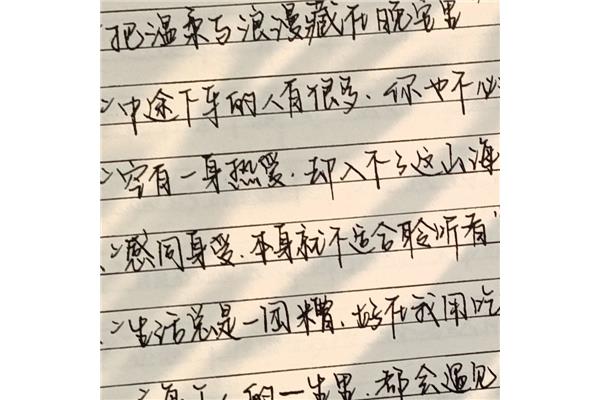 把温柔与浪漫藏在晚安里
中途下车的人有很多、你也不必
空有一身热爱、却入不了这山海
感同身受、本身就不适合聆听者
生活总是一团糟、好在我用吃
每个人的一生里、都会遇见